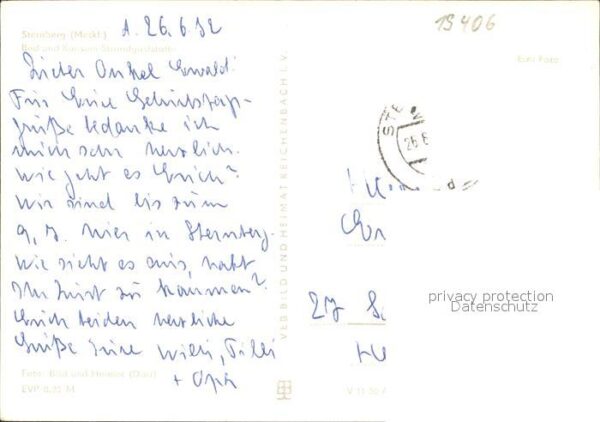 Sternberg (Meckl.)
Bad und Konsum-Strandgaststätte
A. 26.6.72
Lieber Onkel Ewald!
Für Eure Geburtstags-
grüße bedanke ich
mich sehr herzlich.
Wie geht es Euch?
Wir sind bis zum
9.7. hier in Sternberg.
Wie sieht es aus, habt
Ihr Lust zu kommen?
Euch beiden herzliche
Grüße Eure Willi, Tilli
+ Opa
Foto: Bild und Heimat
EVP 0,20 M
VEB BILD UND HEIMAT REICHENBACH I. V.
19406
Echt Foto
STE
26.6
27
V 11 50
privacy protection
Datenschutz